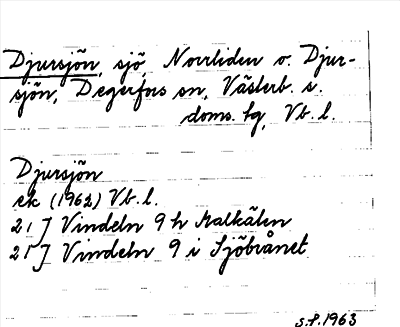 Djursjön, sjö, Norrliden o. Djur-
sjön, Degerfors sn, Västerb. s.
doms. tg, Vb. l.
Djursjön
ek (1962) Vb. l.
21 J Vindeln 9 h Malkälen
21 J Vindeln 9 i Sjöbrånet
S.P. 1963